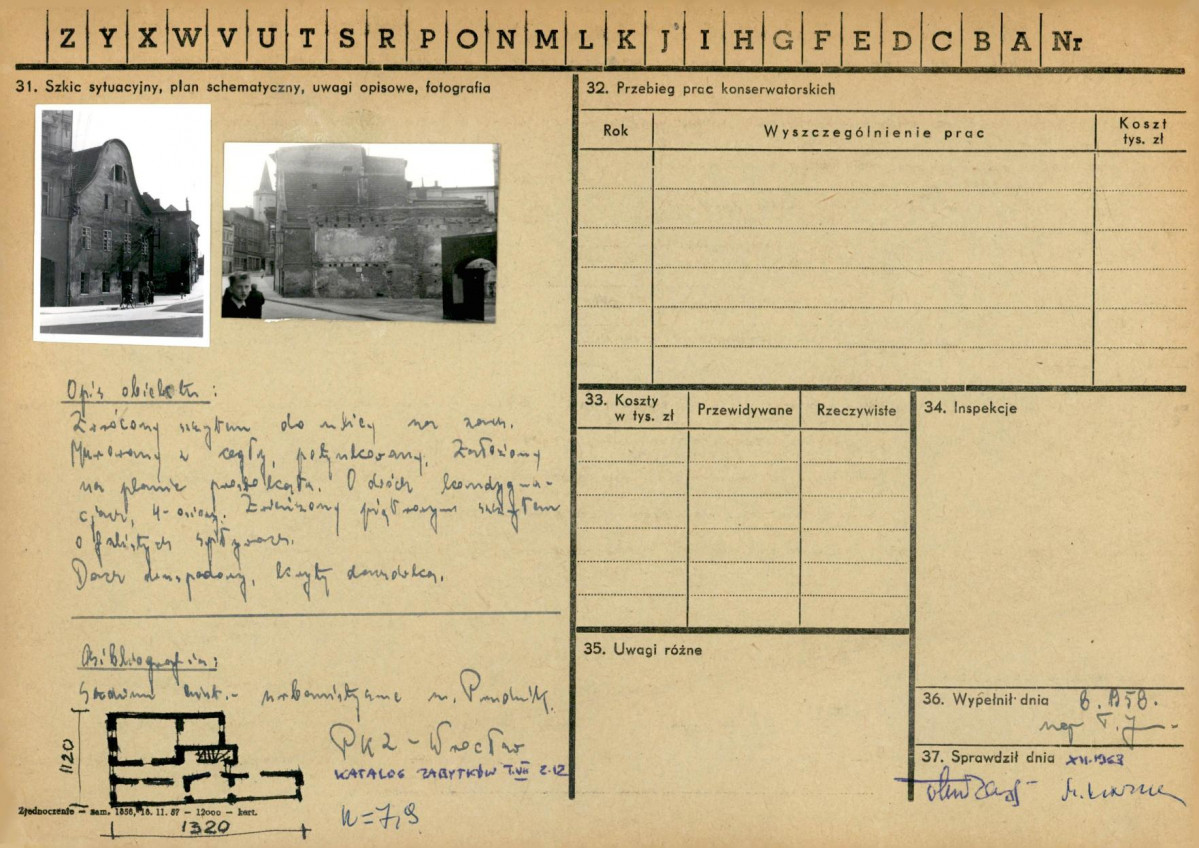 Z Y X W V U T S R P O N M L K J I H G F E D C B A Nr
31. Szkic sytuacyjny, plan schematyczny, uwagi opisowe, fotografia
Opis obiektu:
Zwrócony szczytem do ulicy na zach.
Murowany z cegły, potynkowany. Założony
na planie prostokąta. O dwóch kondygna-
cjach, 4-osiowy. Zwieńczony piętrowym szczytem
o falistych spływach.
Dach dwuspadowy, kryty dachówką.
Bibliografia:
Studium hist.- urbanistyczne m. Prudnik.
PKZ - Wrocław
KATALOG ZABYTKÓW T.VII Z.12
1120
1320
Zjednoczenie — zam. 1856, 16. 11. 57 — 12000 — kart.
32. Przebieg prac konserwatorskich
Rok
Wyszczególnienie prac
Koszt tys. zł
33. Koszty w tys. zł
Przewidywane
Rzeczywiste
34. Inspekcje
35. Uwagi różne
36. Wypełnił dnia
mgr T. J
37. Sprawdził dnia XII.1963